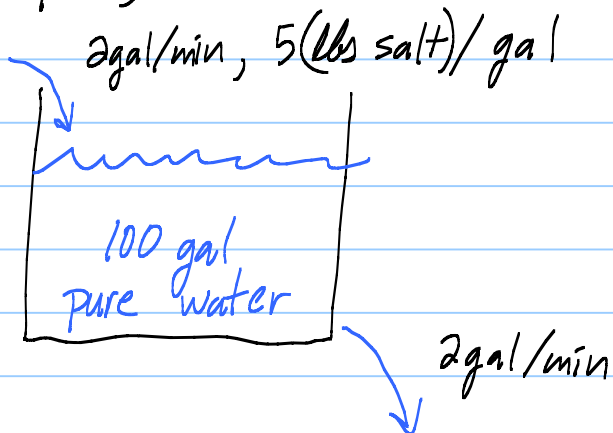 2gal/min, 5(lbs salt)/gal
100 gal
pure water
2gal/min